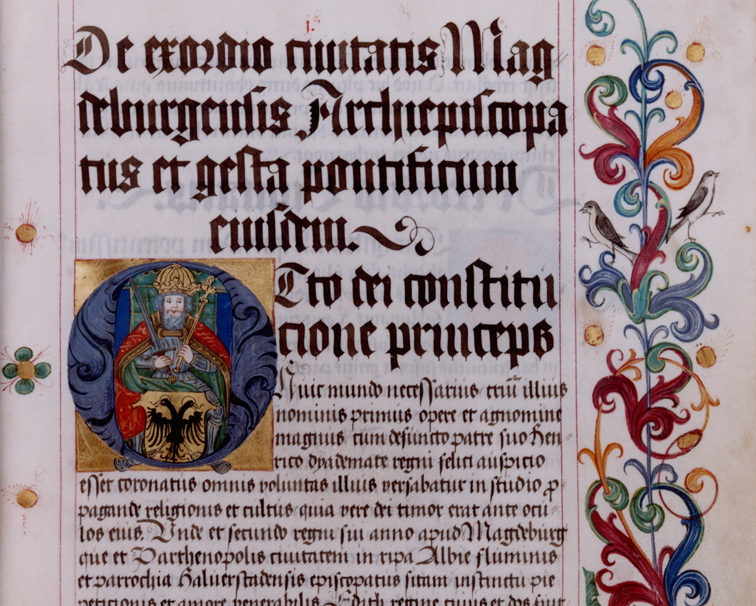 j.
De exordio ciuitatis Mag
deburgensis Archiepiscopa
tus et gesta pontificum
eiusdem.
Otto dei constitu
cione princeps
Huic mundo necessarius, triū illius
nominis primus opere et agnomine
magnus cum defuncto patre suo Hen
rico dyademate regni felici auspicio
esset coronatus omnis voluntas illius versabatur in studio p
pagande religionis et cultus quia vere dei timor erat ante ocu
los eius. Unde et secundo regni sui anno apud Magdeburg
que et Parthenopolis ciuitatem in ripa Albie fluminis
et parrochia Haluerstadensis episcopatus sitam instinctu pie
peticionis et amore venerabilis Edith regine